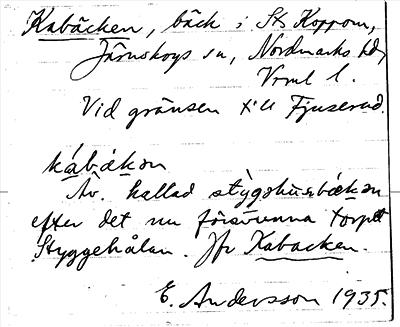 Kabäcken, bäck i St Koppom,
Järnskogs sn, Nordmarks hd,
Vrml l.
Vid gränsen till Fjuserud.
kábäkɘn
Äv. kallad stýgohusbäkɘn
efter det nu försvunna torpet
Styggehålan. Jfr Kabacken.
E. Andersson 1935.